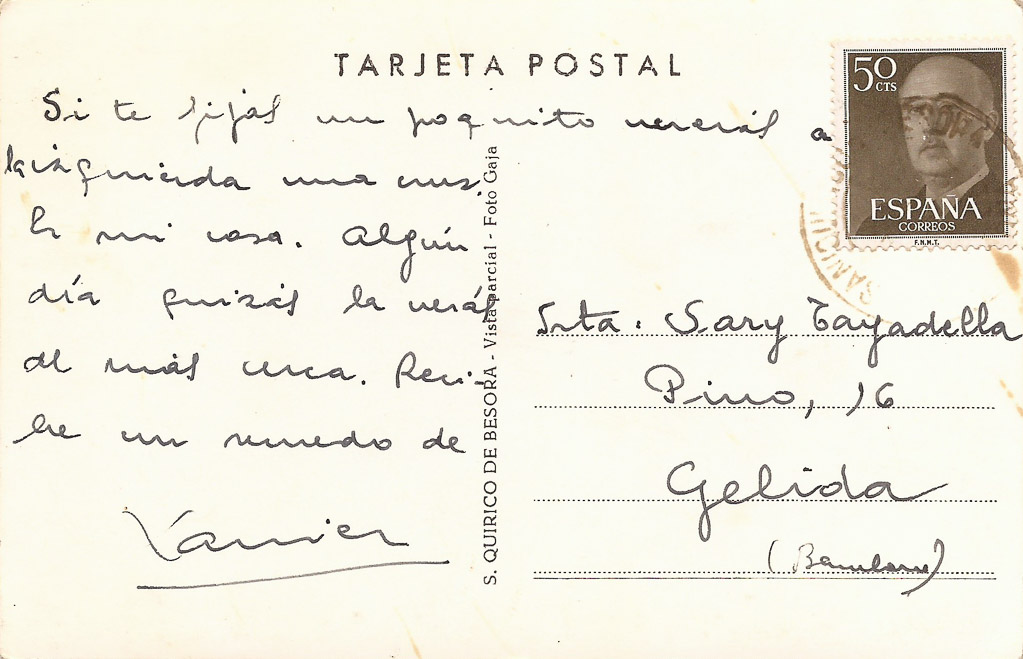 TARJETA POSTAL
50 CTS
ESPAÑA
CORREOS
F.N.M.T.
Si te fijas un poquito verás a
la izquierda una cruz.
Es mi casa. Algún
día quizás la verás
de más cerca. Reci-
be un recuerdo de
Xavier
S. QUIRICO DE BESORA - Vista parcial - Foto Gaja
Srta. Sary Tayadella
Pino, 16
Gelida
(Barcelona)